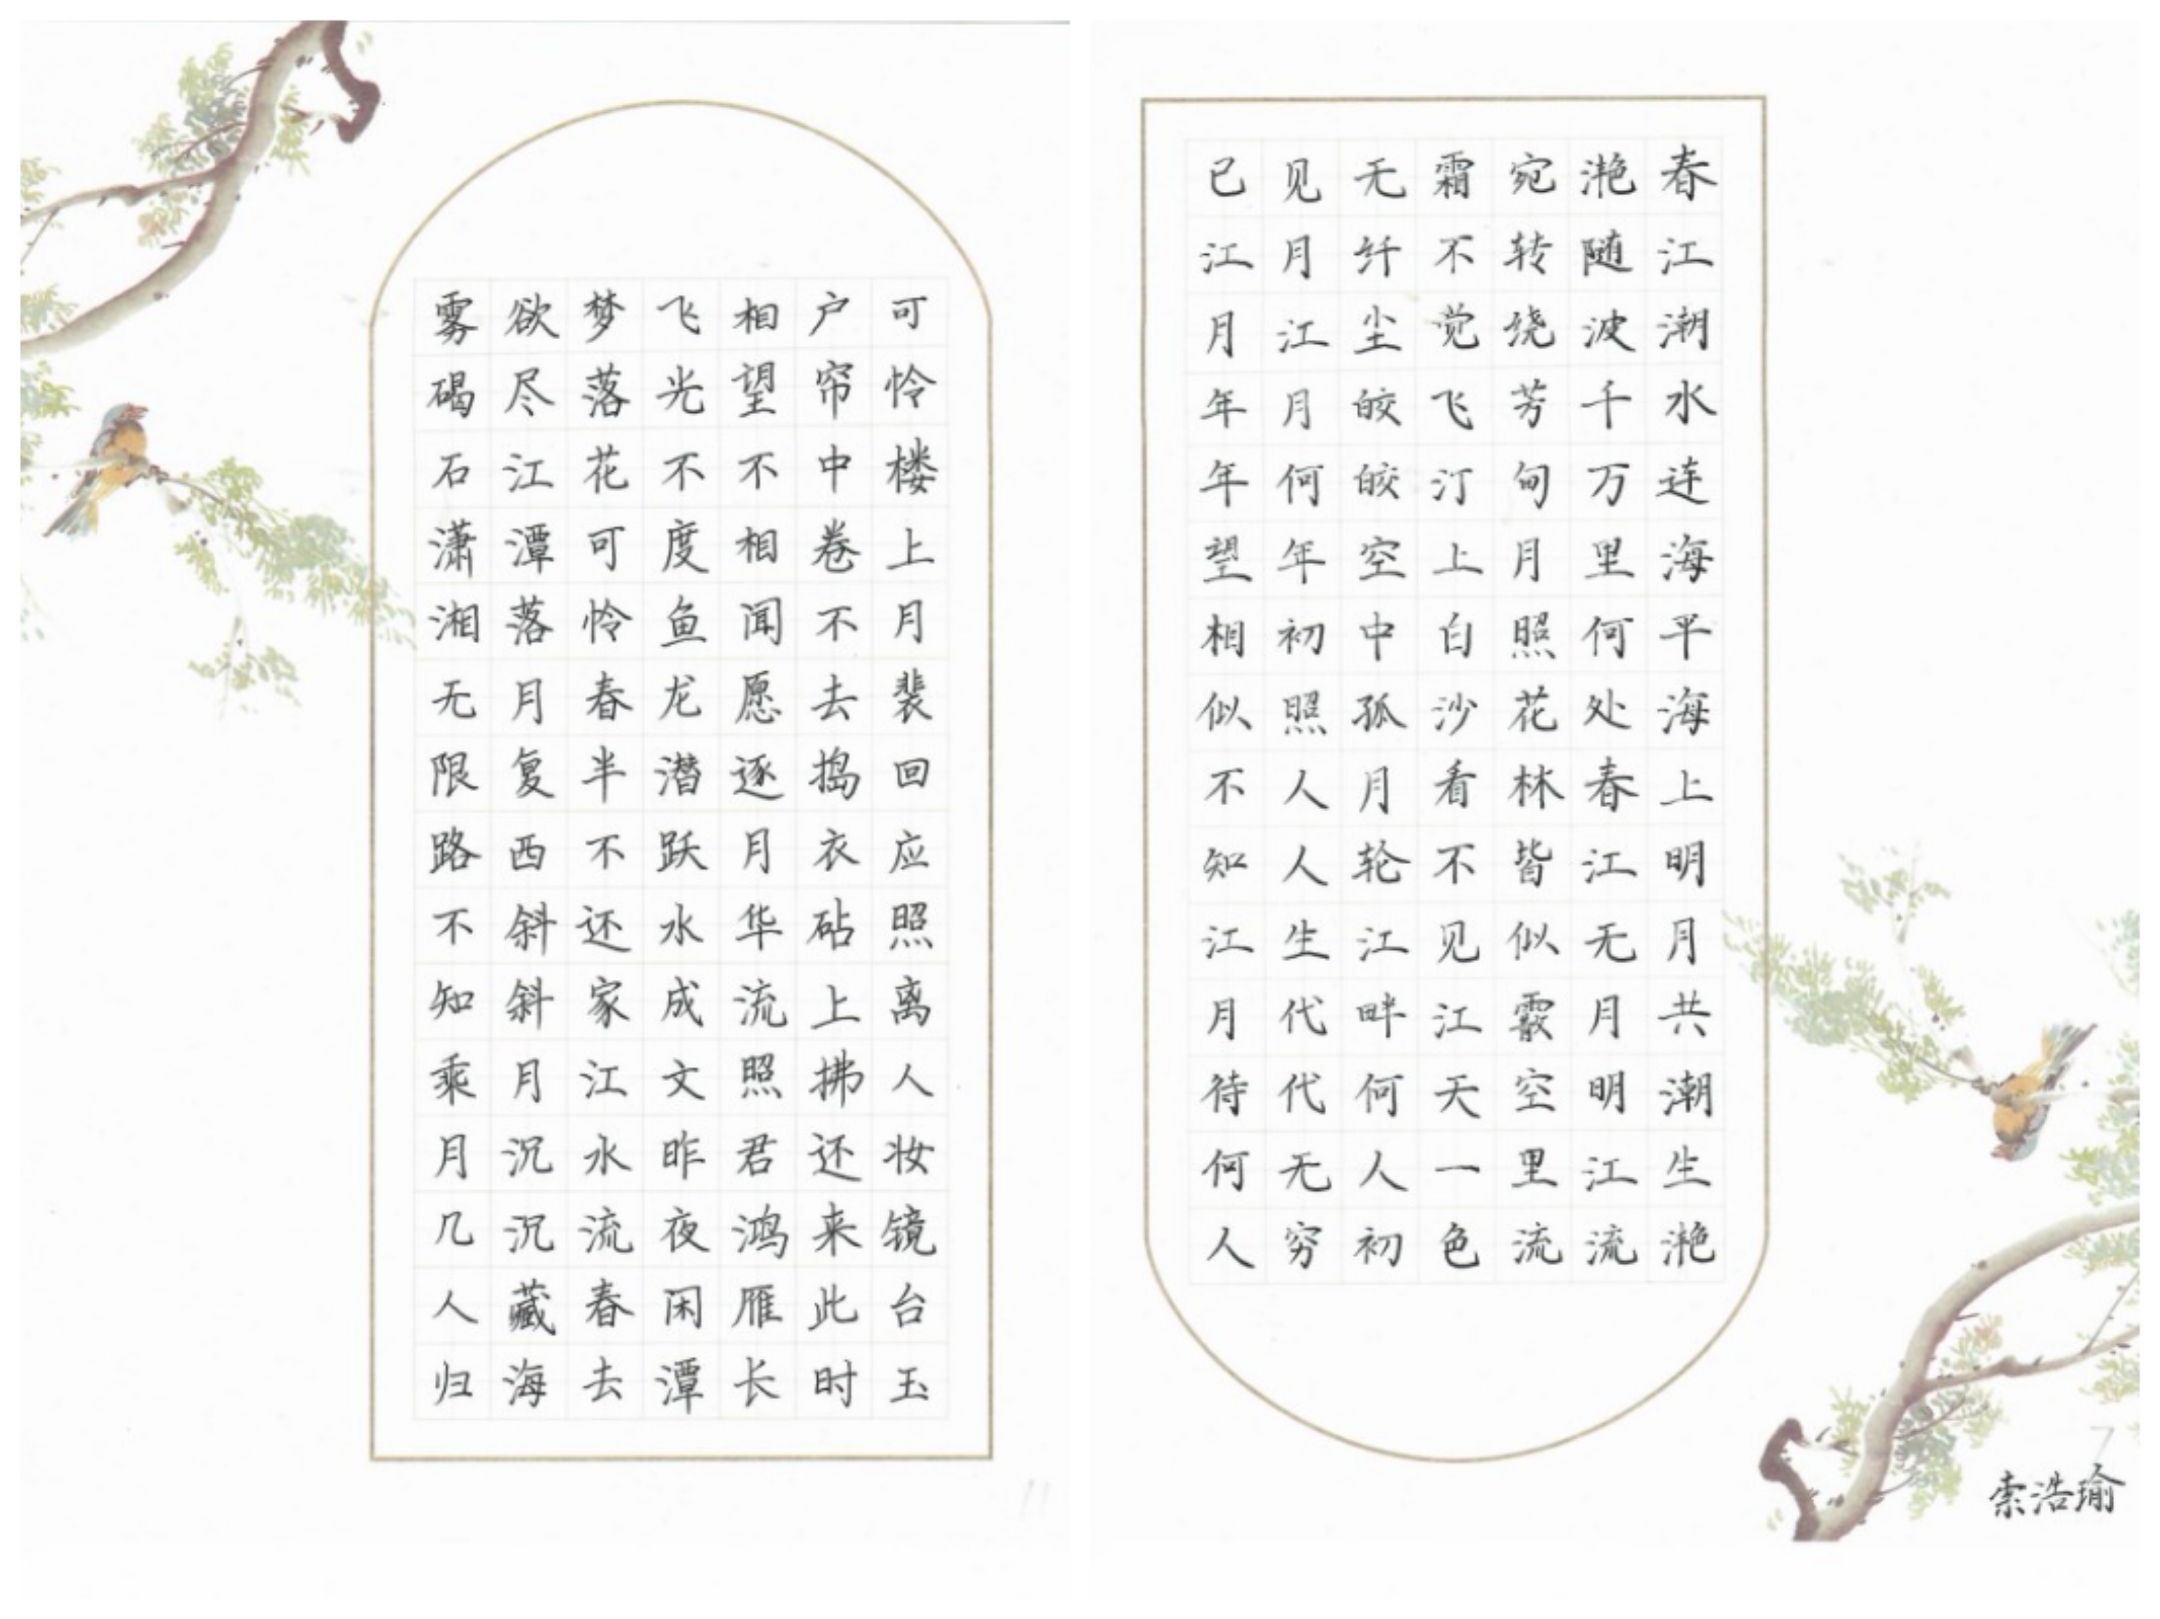 春江潮水连海平海上明月共潮生滟
滟随波千万里何处春江无月明江流
宛转绕芳甸月照花林皆似霰空里流
霜不觉飞汀上白沙看不见江天一色
无纤尘皎皎空中孤月轮江畔何人初
见月江月何年初照人人生代代无穷
已江月年年望相似不知江月待何人
索浩瑜
可怜楼上月裴回应照离人妆镜台玉
户帘中卷不去捣衣砧上拂还来此时
相望不相闻愿逐月华流照君鸿雁长
飞光不度鱼龙潜跃水成文昨夜闲潭
梦落花可怜春半不还家江水流春去
欲尽江潭落月复西斜斜月沉沉藏海
雾碣石潇湘无限路不知乘月几人归